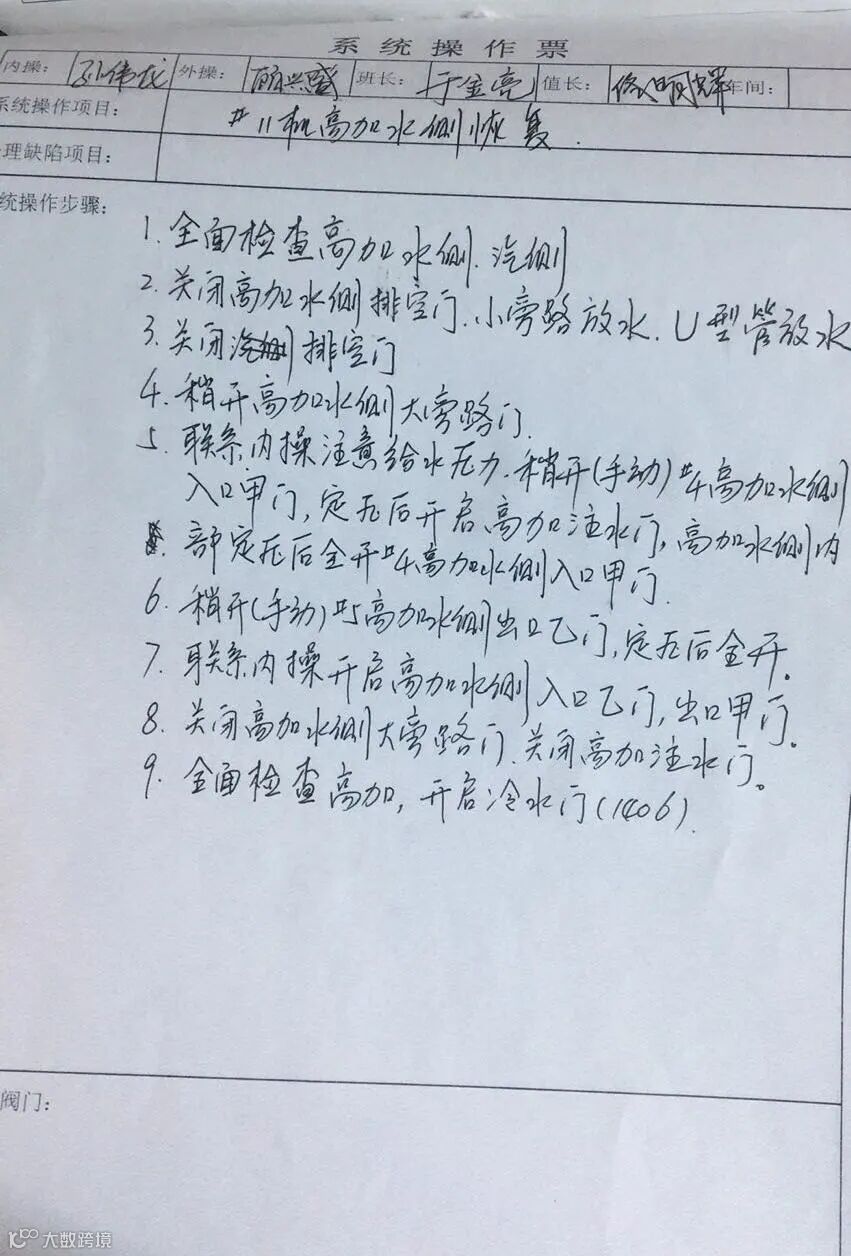 系统操作票
内操: 孙伟龙 外操: 顾兴盛 班长: 于金亮 值长: 佟明辉 车间:
系统操作项目: #11机高加水侧恢复.
理缺陷项目:
统操作步骤:
1. 全面检查高加水侧.汽侧
2. 关闭高加水侧排空门.小旁路放水.U型管放水
3. 关闭汽侧排空门
4. 稍开高加水侧大旁路门.
5. 联系内操注意给水压力.稍开(手动)#4高加水侧
入口甲门,定压后开启高加注水门,高加水侧内
部定压后全开#4高加水侧入口甲门.
6. 稍开(手动)#5高加水侧出口乙门,定压后全开。
7. 联系内操开启高加水侧入口乙门,出口甲门。
8. 关闭高加水侧大旁路门.关闭高加注水门。
9. 全面检查高加,开启冷水门(1406).
阀门:
大数跨境